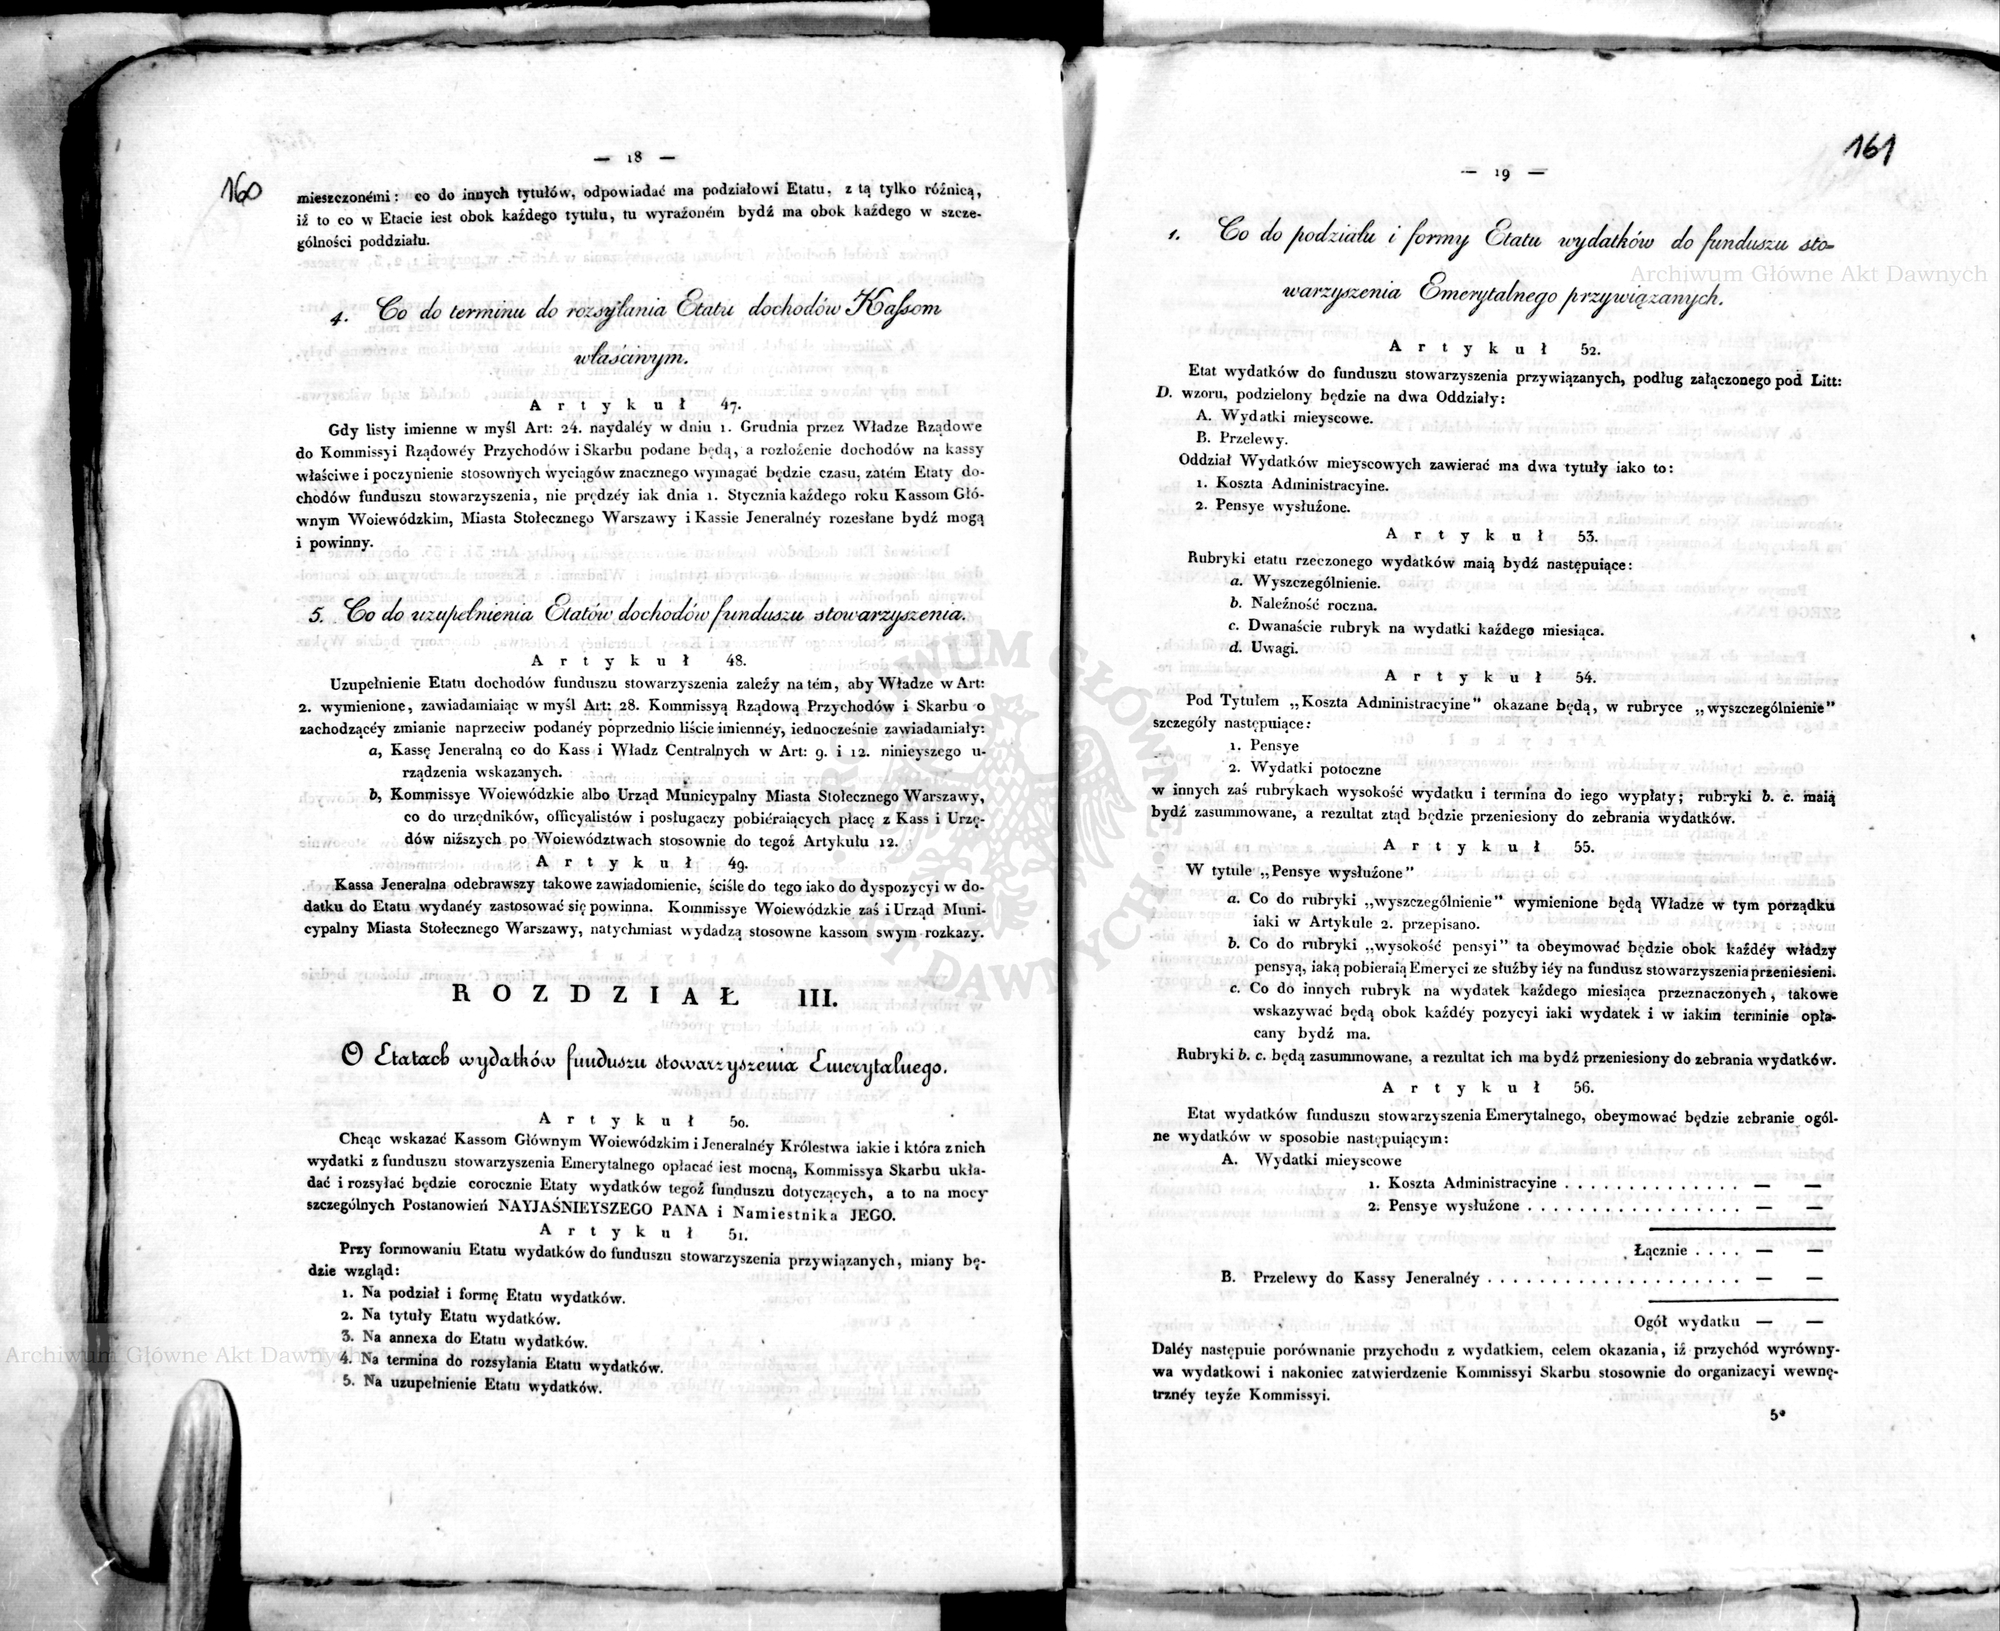 160
— 18 —
mieszczonémi: co do innych tytułów, odpowiadać ma podziałowi Etatu, z tą tylko różnicą,
iż to co w Etacie iest obok każdego tytułu, tu wyrażoném bydź ma obok każdego w szcze-
gólności poddziału.
4. Co do terminu do rozsyłania Etatu dochodów Kassom
właściwym.
Artykuł 47.
Gdy listy imienne w myśl Art: 24. naydaléy w dniu 1. Grudnia przez Władze Rządowe
do Kommissyi Rządowéy Przychodów i Skarbu podane będą, a rozłożenie dochodów na kassy
właściwe i poczynienie stosownych wyciągów znacznego wymagać będzie czasu, zatém Etaty do-
chodów funduszu stowarzyszenia, nie prędzéy iak dnia 1. Stycznia każdego roku Kassom Głó-
wnym Woiewódzkim, Miasta Stołecznego Warszawy i Kassie Jeneralnéy rozesłane bydź mogą
i powinny.
5. Co do uzupełnienia Etatów dochodów funduszu stowarzyszenia.
Artykuł 48.
Uzupełnienie Etatu dochodów funduszu stowarzyszenia zależy na tém, aby Władze w Art:
2. wymienione, zawiadamiaiąc w myśl Art: 28. Kommissyą Rządową Przychodów i Skarbu o
zachodzącéy zmianie naprzeciw podanéy poprzednio liście imiennéy, iednocześnie zawiadamiały:
a, Kassę Jeneralną co do Kass i Władz Centralnych w Art: 9. i 12. ninieyszego u-
rządzenia wskazanych.
b, Kommissye Woiewódzkie albo Urząd Municypalny Miasta Stołecznego Warszawy,
co do urzędników, officyalistów i posługaczy pobiéraiących płacę z Kass i Urzę-
dów niższych po Woiewództwach stosownie do tegoż Artykułu 12.
Artykuł 49.
Kassa Jeneralna odebrawszy takowe zawiadomienie, ściśle do tego iako do dyspozycyi w do-
datku do Etatu wydanéy zastosować się powinna. Kommissye Woiewódzkie zaś i Urząd Muni-
cypalny Miasta Stołecznego Warszawy, natychmiast wydadzą stosowne kassom swym rozkazy.
ROZDZIAŁ III.
O Etatach wydatków funduszu stowarzyszenia Emerytalnego.
Artykuł 50.
Chcąc wskazać Kassom Głównym Woiewódzkim i Jeneralnéy Królestwa iakie i która z nich
wydatki z funduszu stowarzyszenia Emerytalnego opłacać iest mocną, Kommissya Skarbu ukła-
dać i rozsyłać będzie corocznie Etaty wydatków tegoż funduszu dotyczących, a to na mocy
szczególnych Postanowień NAYJAŚNIEYSZEGO PANA i Namiestnika JEGO.
Artykuł 51.
Przy formowaniu Etatu wydatków do funduszu stowarzyszenia przywiązanych, miany bę-
dzie wzgląd:
1. Na podział i formę Etatu wydatków.
2. Na tytuły Etatu wydatków.
3. Na annexa do Etatu wydatków.
4. Na termina do rozsyłania Etatu wydatków.
5. Na uzupełnienie Etatu wydatków.
161
— 19 —
1. Co do podziału i formy Etatu wydatków do funduszu sto-
warzyszenia Emerytalnego przywiązanych.
Artykuł 52.
Etat wydatków do funduszu stowarzyszenia przywiązanych, podług załączonego pod Litt:
D. wzoru, podzielony będzie na dwa Oddziały:
A. Wydatki mieyscowe.
B. Przelewy.
Oddział Wydatków mieyscowych zawierać ma dwa tytuły iako to:
1. Koszta Administracyine.
2. Pensye wysłużone.
Artykuł 53.
Rubryki etatu rzeczonego wydatków maią bydź następuiące:
a. Wyszczególnienie.
b. Należność roczna.
c. Dwanaście rubryk na wydatki każdego miesiąca.
d. Uwagi.
Artykuł 54.
Pod Tytułem „Koszta Administracyine" okazane będą, w rubryce „wyszczególnienie"
szczegóły następuiące:
1. Pensye
2. Wydatki potoczne
w innych zaś rubrykach wysokość wydatku i termina do iego wypłaty; rubryki b. c. maią
bydź zasummowane, a rezultat ztąd będzie przeniesiony do zebrania wydatków.
Artykuł 55.
W tytule „Pensye wysłużone"
a. Co do rubryki „wyszczególnienie" wymienione będą Władze w tym porządku
iaki w Artykule 2. przepisano.
b. Co do rubryki „wysokość pensyi" ta obeymować będzie obok każdéy władzy
pensyą, iaką pobieraią Emeryci ze służby iéy na fundusz stowarzyszenia przeniesieni.
c. Co do innych rubryk na wydatek każdego miesiąca przeznaczonych, takowe
wskazywać będą obok każdéy pozycyi iaki wydatek i w iakim terminie opła-
cany bydź ma.
Rubryki b. c. będą zasummowane, a rezultat ich ma bydź przeniesiony do zebrania wydatków.
Artykuł 56.
Etat wydatków funduszu stowarzyszenia Emerytalnego, obeymować będzie zebranie ogól-
ne wydatków w sposobie następuiącym:
A. Wydatki mieyscowe
1. Koszta Administracyine . . . . . . . . . . . . . . — —
2. Pensye wysłużone . . . . . . . . . . . . . . . . . — —
Łącznie . . . . — —
B. Przelewy do Kassy Jeneralnéy . . . . . . . . . . . . . . . . . . . . — —
Ogół wydatku — —
Daléy następuie porównanie przychodu z wydatkiem, celem okazania, iż przychód wyrówny-
wa wydatkowi i nakoniec zatwierdzenie Kommissyi Skarbu stosownie do organizacyi wewnę-
trznéy teyże Kommissyi.
5*
Archiwum Główne Akt Dawnych
Archiwum Główne Akt Dawnych
ARCHIWUM GŁÓWNE AKT DAWNYCH